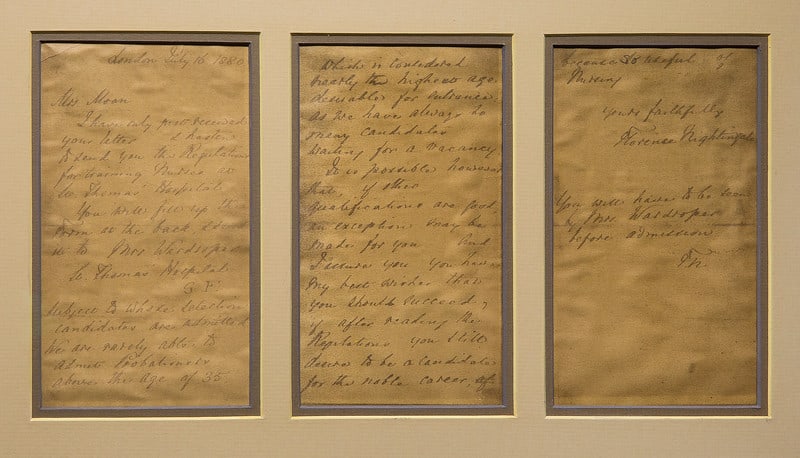 London July 16 1880
Mrs Moan
I have only just received
your letter & hasten
to send you the Regulations
for training Nurses at
St. Thomas' Hospital
You will fill up the
Form at the back, & send
it to Mrs Wardroper
St. Thomas Hospital
S. E.
subject to whose selection
candidates are admitted
We are rarely able to
admit Probationers
above the age of 35
which is considered
nearly the highest age
desirable for entrance
as we have always so
many candidates
waiting for a vacancy
It is possible however
that, if other
qualifications are good,
an exception may be
made for you. And
I assure you you have
my best wishes that
you should succeed,
if after reading the
Regulations you still
desire to be a candidate
for the noble career, of
because so useful, of
Nursing
Yours faithfully
Florence Nightingale
You will have to be seen
by Mrs Wardroper
before admission